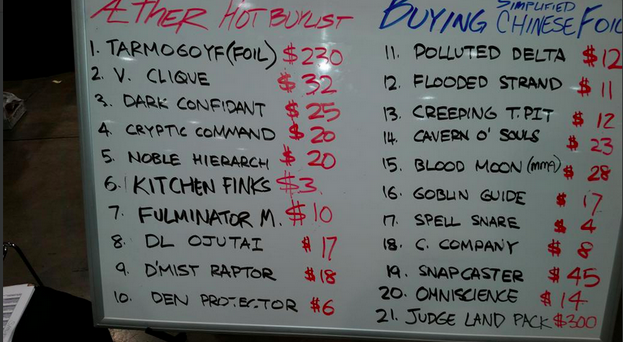 ÆTHER HOT BUYLIST
1. TARMOGOYF (FOIL) $230
2. V. CLIQUE $32
3. DARK CONFIDANT $25
4. CRYPTIC COMMAND $20
5. NOBLE HIERARCH $20
6. KITCHEN FINKS $3
7. FULMINATOR M. $10
8. DL OJUTAI $17
9. D'MIST RAPTOR $18
10. DEN PROTECTOR $6
BUYING SIMPLIFIED CHINESE FOIL
11. POLLUTED DELTA $12
12. FLOODED STRAND $11
13. CREEPING T. PIT $12
14. CAVERN O' SOULS $23
15. BLOOD MOON (MMA) $28
16. GOBLIN GUIDE $17
17. SPELL SNARE $4
18. C. COMPANY $8
19. SNAPCASTER $45
20. OMNISCIENCE $14
21. JUDGE LAND PACK $300